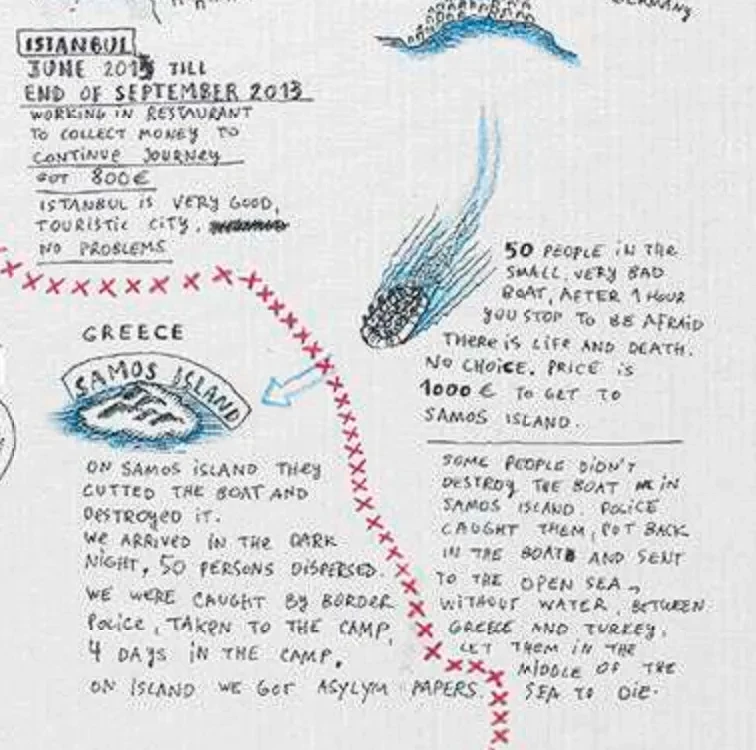 GERMANY
ISTANBUL
JUNE 2013 TILL
END OF SEPTEMBER 2013
WORKING IN RESTAURANT
TO COLLECT MONEY TO
CONTINUE JOURNEY
GOT 800€
ISTANBUL IS VERY GOOD,
TOURISTIC CITY,
NO PROBLEMS
50 PEOPLE IN THE
SMALL, VERY BAD
BOAT, AFTER 1 HOUR
YOU STOP TO BE AFRAID
THERE IS LIFE AND DEATH.
NO CHOICE. PRICE IS
1000 € TO GET TO
SAMOS ISLAND.
GREECE
SAMOS ISLAND
ON SAMOS ISLAND THEY
CUTTED THE BOAT AND
DESTROYED IT.
WE ARRIVED IN THE DARK
NIGHT, 50 PERSONS DISPERSED.
WE WERE CAUGHT BY BORDER
POLICE, TAKEN TO THE CAMP,
4 DAYS IN THE CAMP.
ON ISLAND WE GOT ASYLYM PAPERS.
SOME PEOPLE DIDN'T
DESTROY THE BOAT IN
SAMOS ISLAND. POLICE
CAUGHT THEM, PUT BACK
IN THE BOAT AND SENT
TO THE OPEN SEA,
WITHOUT WATER, BETWEEN
GREECE AND TURKEY,
LET THEM IN THE
MIDDLE OF THE
SEA TO DIE.